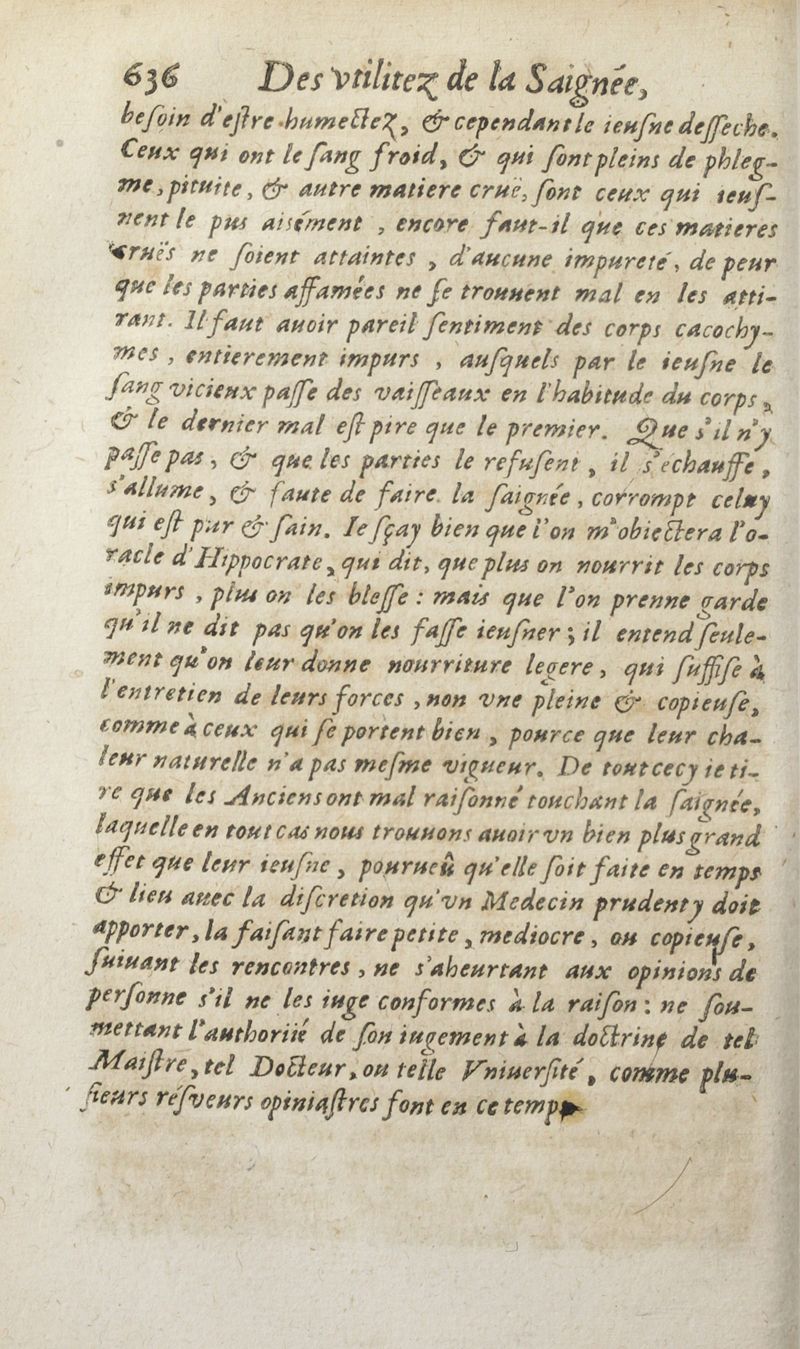 636 Des vtilitez de la Saignée,
beſoin d'eſtre humectez, & cependant le ieuſne deſſeche.
Ceux qui ont le ſang froid, & qui ſont pleins de phleg-
me, pituite, & autre matiere cruë, ſont ceux qui ieuſ-
nent le pus aisément , encore faut-il que ces matieres
cruës ne ſoient attaintes , d'aucune impureté, de peur
que les parties affamées ne ſe trouuent mal en les atti-
rant. Il faut auoir pareil ſentiment des corps cacochy-
mes , entierement impurs , auſquels par le ieuſne le
ſang vicieux paſſe des vaiſſeaux en l'habitude du corps,
& le dernier mal eſt pire que le premier. Que s'il n'y
paſſe pas, & que les parties le refuſent, il s'echauffe,
s'allume, & faute de faire la ſaignée, corrompt celuy
qui eſt pur & ſain. Ie ſçay bien que l'on m'obiectera l'o-
racle d'Hippocrate, qui dit, que plus on nourrit les corps
impurs , plus on les bleſſe : mais que l'on prenne garde
qu'il ne dit pas qu'on les faſſe ieuſner ; il entend ſeule-
ment qu'on leur donne nourriture legere, qui ſuffiſe à
l'entretien de leurs forces , non vne pleine & copieuſe,
comme à ceux qui ſe portent bien , pource que leur cha-
leur naturelle n'a pas meſme vigueur. De tout cecy ie ti-
re que les Anciens ont mal raiſonné touchant la ſaignée,
laquelle en tout cas nous trouuons auoir vn bien plus grand
effet que leur ieuſne , pourueû qu'elle ſoit faite en temps
& lieu auec la diſcretion qu'vn Medecin prudent y doit
apporter, la faiſant faire petite, mediocre, ou copieuſe,
ſuiuant les rencontres , ne s'aheurtant aux opinions de
perſonne s'il ne les iuge conformes à la raiſon : ne ſou-
mettant l'authorité de ſon iugement à la doctrine de tel
Maiſtre, tel Docteur, ou telle Vniuerſité, comme plu-
ſieurs réſveurs opiniaſtres font en ce temps.